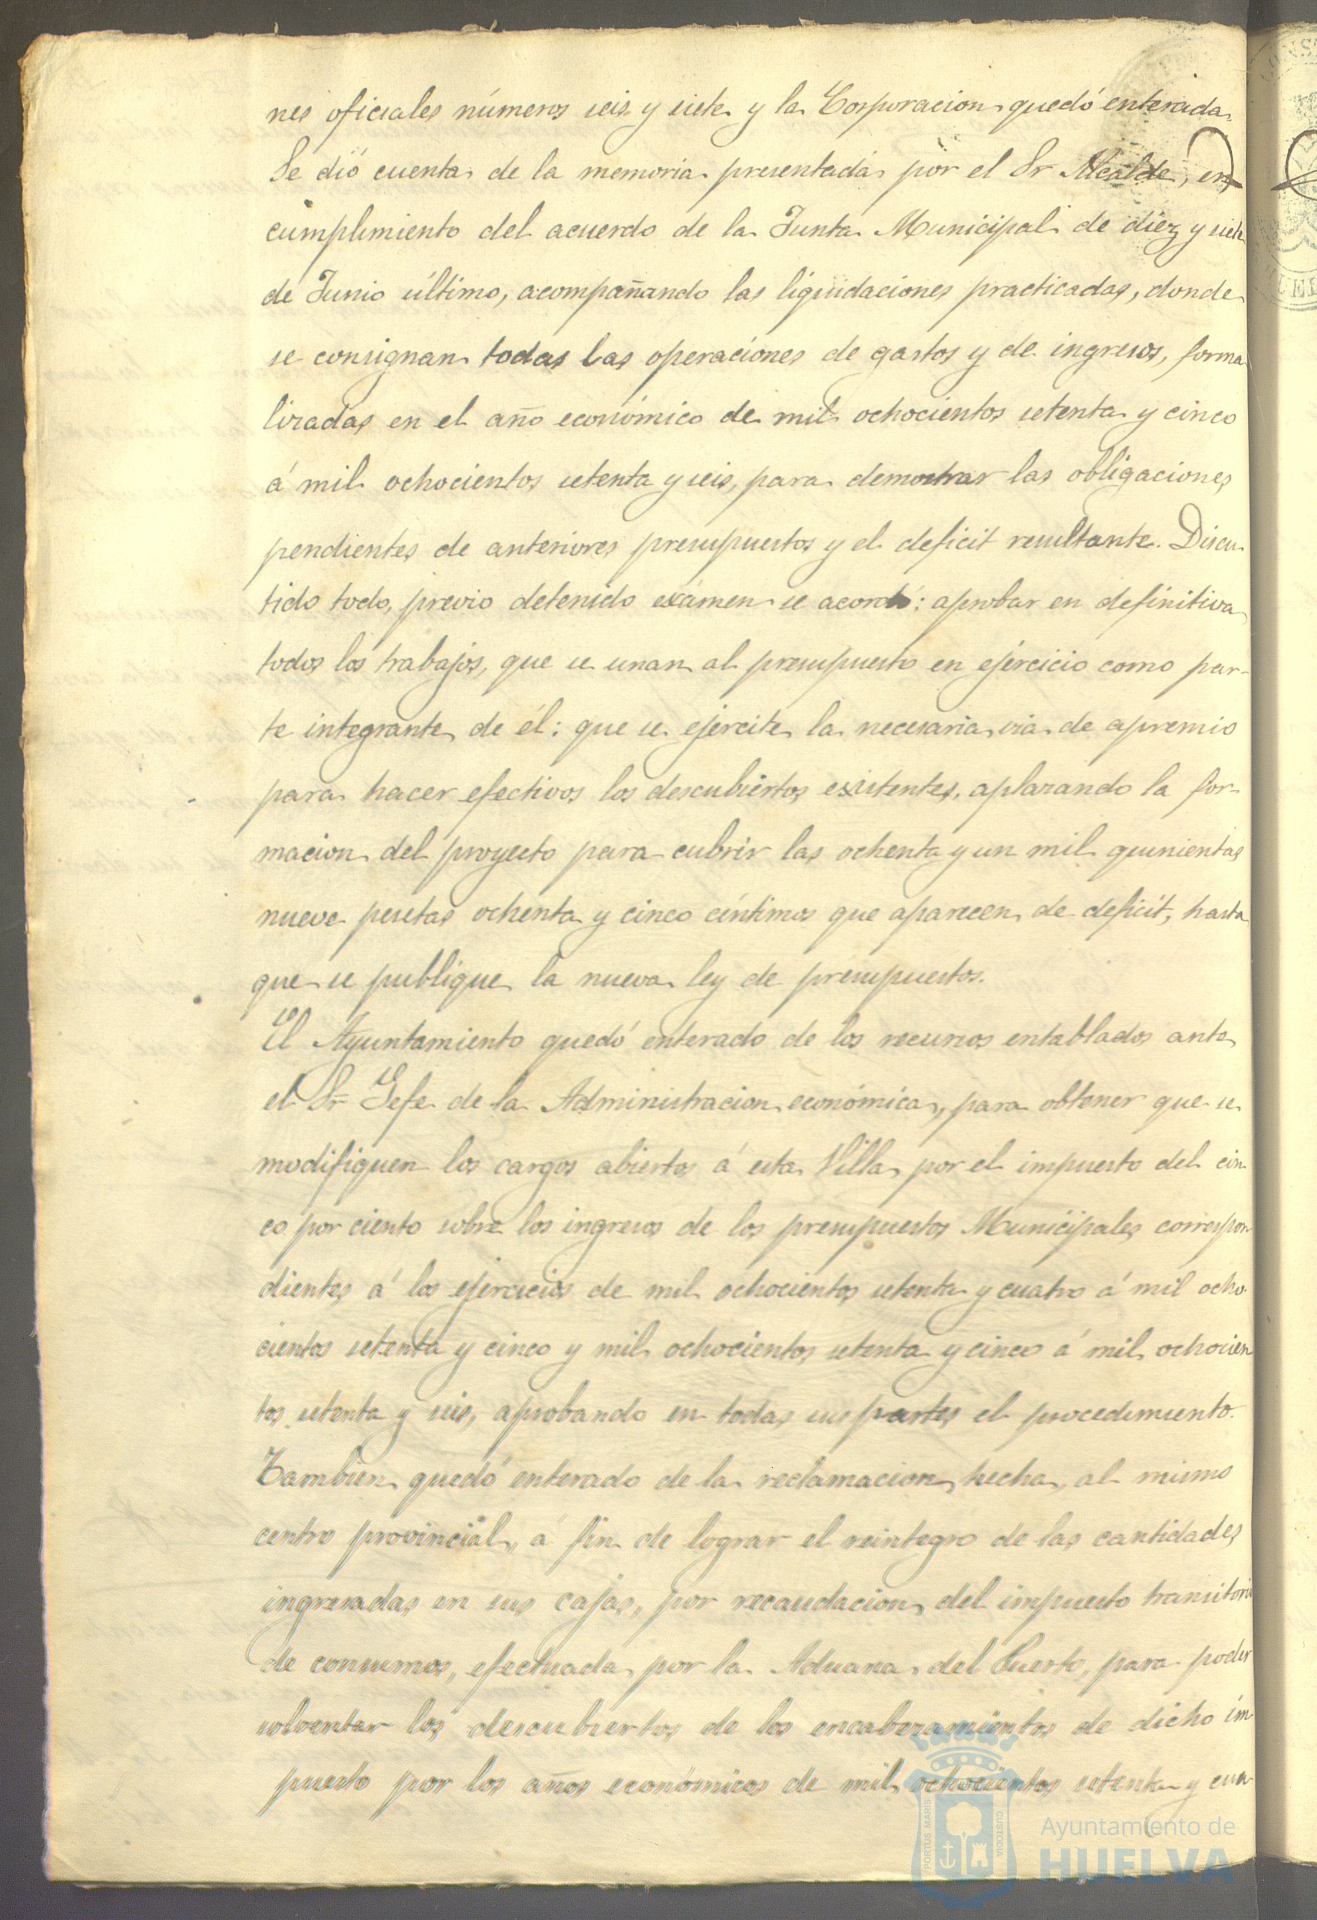 nes oficiales números seis y siete y la Corporacion quedó enterada.
Se dió cuenta de la memoria presentada por el Sr Alcalde, en
cumplimiento del acuerdo de la Junta Municipal de diez y siete
de Junio último, acompañando las liquidaciones practicadas, donde
se consignan todas las operaciones de gastos y de ingresos, forma
lizadas en el año económico de mil ochocientos setenta y cinco
á mil ochocientos setenta y seis, para demostrar las obligaciones
pendientes de anteriores presupuestos y el deficit resultante. Discu-
tido todo, previo detenido exámen se acordó: aprobar en definitiva
todos los trabajos, que se unan al presupuesto en ejercicio como par-
te integrante de él: que se ejercite la necesaria via de apremio
para hacer efectivos los descubiertos existentes, aplazando la for-
macion del proyecto para cubrir las ochenta y un mil quinientas
nueve pesetas ochenta y cinco céntimos que aparecen de deficit, hasta
que se publique la nueva ley de presupuestos.
El Ayuntamiento quedó enterado de los recursos entablados ante
el Sr Gefe de la Administracion económica, para obtener que se
modifiquen los cargos abiertos á esta Villa por el impuesto del cin
co por ciento sobre los ingresos de los presupuestos Municipales correspon
dientes á los ejercicios de mil ochocientos setenta y cuatro á mil ocho-
cientos setenta y cinco y mil ochocientos setenta y cinco á mil ochocien
tos setenta y seis, aprobando en todas sus partes el procedimiento.
Tambien quedó enterado de la reclamacion hecha, al mismo
centro provincial, á fin de lograr el reintegro de las cantidades
ingresadas en sus cajas, por recaudacion del impuesto transitorio
de consumos, efectuada por la Aduana del Puerto, para poder
solventar los descubiertos de los encabezamientos de dicho im
puesto por los años económicos de mil ochocientos setenta y cua-
PORTUS MARIS CUSTODIA
Ayuntamiento de
HUELVA